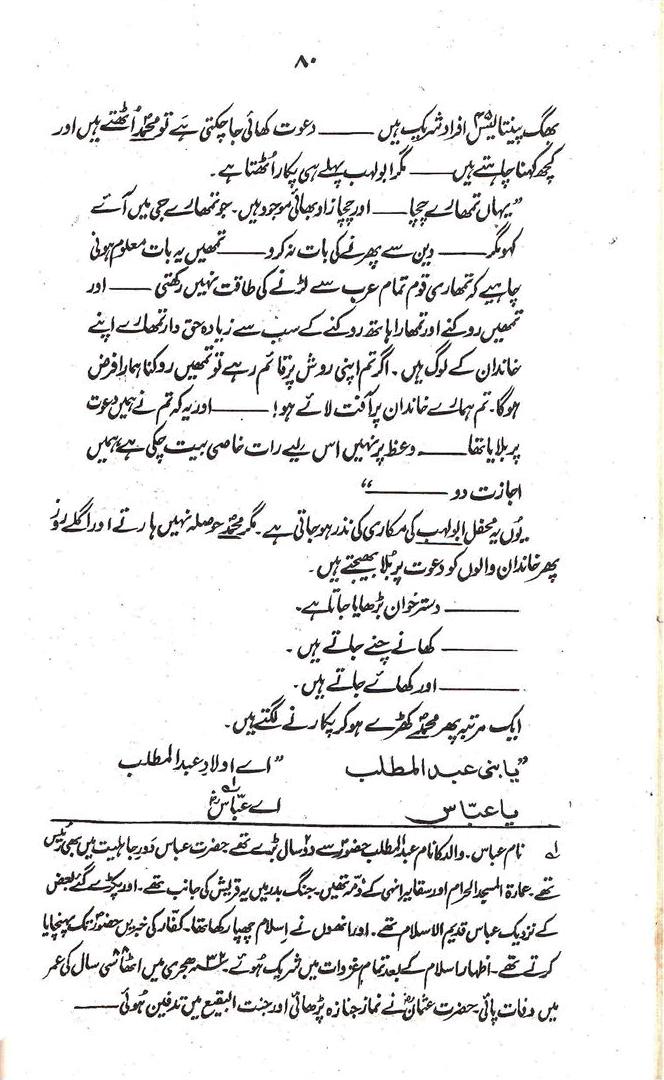 ۸۰
بھگ پینتالیس۴۵ افراد شریک ہیں ——— دعوت کھائی جا چکتی ہے تو محمدؐ اُٹھتے ہیں اور
کچھ کہنا چاہتے ہیں ——— مگر ابولہب پہلے ہی پکار اُٹھتا ہے۔
”یہاں تمھارے چچا —— اور چچا زاد بھائی موجود ہیں۔ جو تمھارے جی میں آئے
کہو مگر —— دین سے پھرنے کی بات نہ کرو —— تمھیں یہ بات معلوم ہونی
چاہیے کہ تمھاری قوم تمام عرب سے لڑنے کی طاقت نہیں رکھتی —— اور
تمھیں روکنے اور تمھارا ہاتھ روکنے کے سب سے زیادہ حق دار تمھارے اپنے
خاندان کے لوگ ہیں۔ اگر تم اپنی روش پر قائم رہے تو تمھیں روکنا ہمارا فرض
ہوگا۔ تم ہمارے خاندان پر آفت لائے ہو! —— اور یہ کہ تم نے ہمیں دعوت
پر بلایا تھا —— وعظ پر نہیں اس لیے رات خاصی بیت چکی ہے، ہمیں
اجازت دو ———“
یُوں یہ محفل ابولہب کی مکاری کی نذر ہو جاتی ہے۔ مگر محمدؐ حوصلہ نہیں ہارتے اور اگلے روز
پھر خاندان والوں کو دعوت پر بُلا بھیجتے ہیں۔
——— دسترخوان بڑھایا جاتا ہے۔
——— کھانے چنے جاتے ہیں۔
——— اور کھائے جاتے ہیں۔
ایک مرتبہ پھر محمدؐ کھڑے ہو کر پکارنے لگتے ہیں۔
”یا بنی عبد المطلب ”اے اولادِ عبد المطلب
یا عبّاس اے عبّاسؓ۱ے
۱ے نام عباس۔ والد کا نام عبد المطلب حضورؐ سے دو۲ سال بڑے تھے۔ حضرت عباس دَورِ جاہلیت میں بھی رئیس
تھے۔ عمارۃ المسجد الحرام اور سقایہ انہی کے ذمّہ تھیں۔ جنگ بدر میں یہ قریش کی جانب تھے۔ اور پکڑے گئے بعض
کے نزدیک عباس قدیم الاسلام تھے۔ اور انھوں نے اِسلام چھپا رکھا تھا۔ کفّار کی خبریں حضورؐ تک پہنچایا
کرتے تھے۔ اظہار اسلام کے بعد تمام غزوات میں شریک ہُوئے۔ ۳۲ھ ہجری میں اٹھاسی۸۸ سال کی عمر
میں وفات پائی۔ حضرت عثمانؓ نے نماز جنازہ پڑھائی اور جنت البقیع میں تدفین ہُوئی ——